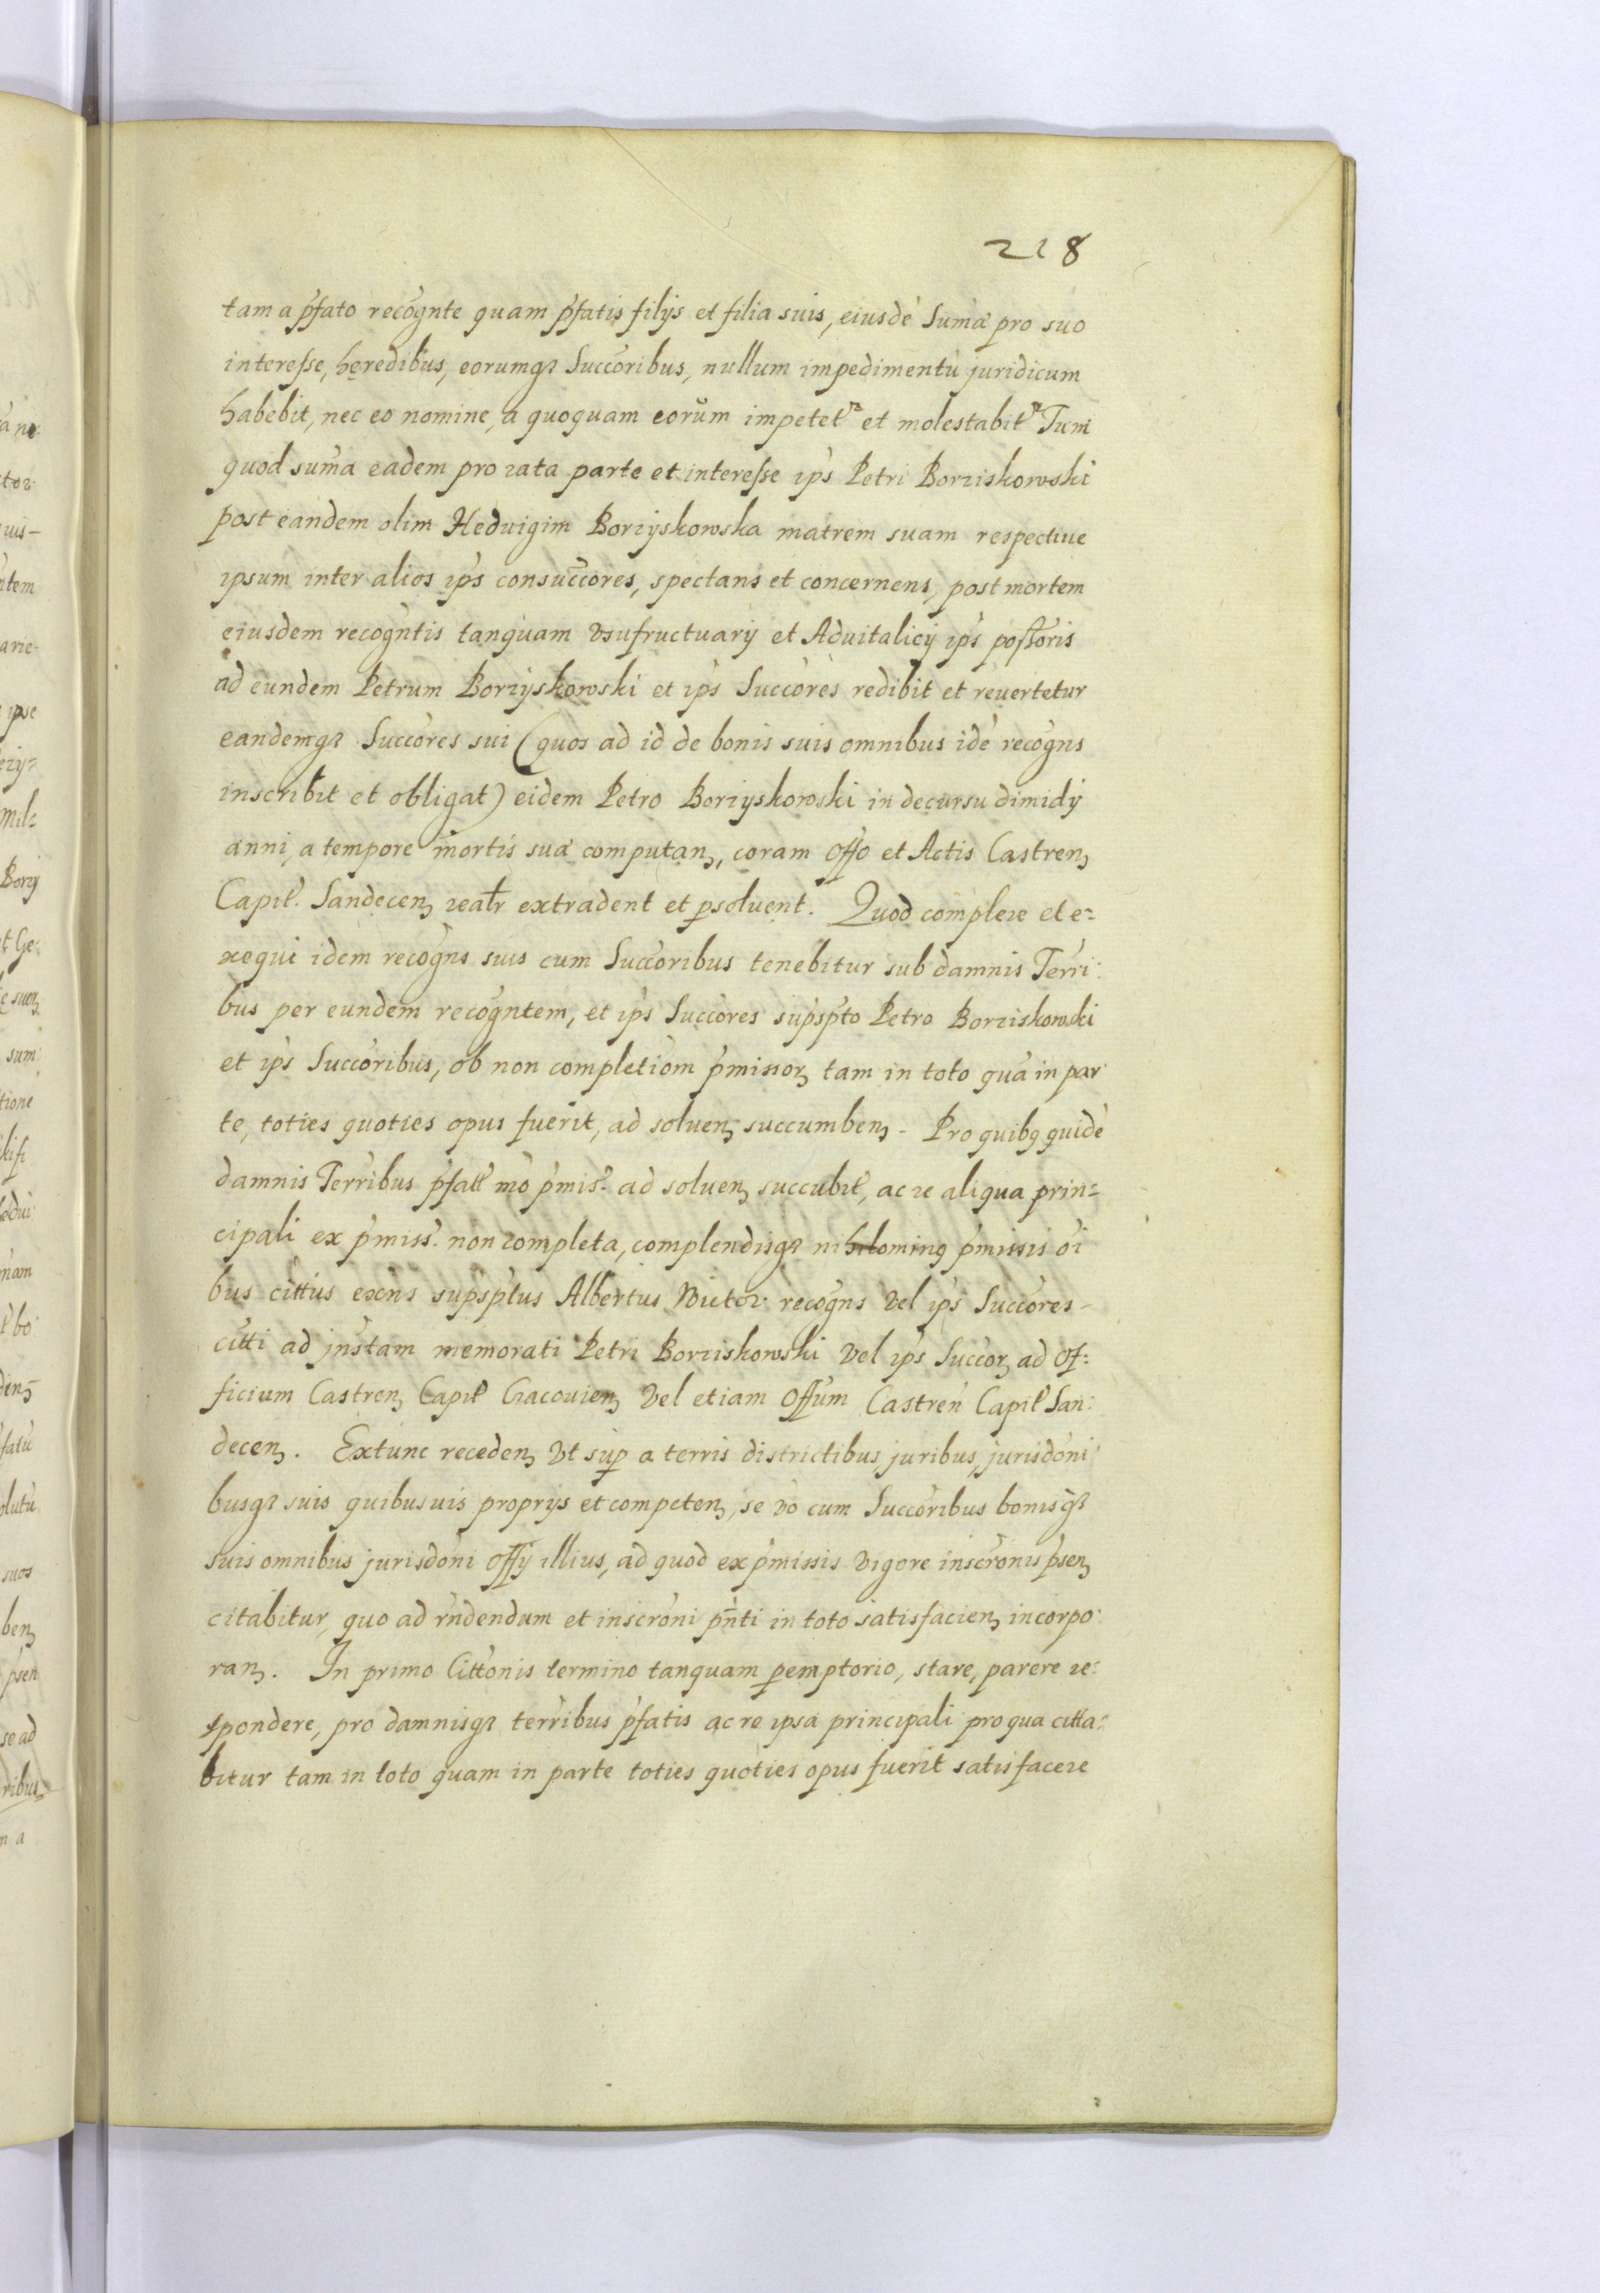 228
tam a p̃fato recog̃nte quam p̃fatis filijs et filia suis, eiusdẽ Sum̃æ pro suo
interesse, hęredibus, eorumq₃ Succ̃oribus, nullum impedimentũ juridicum
habebit, nec eo nomine, a quoquam eorũm impetetʳ et molestabitʳ Tum
quod sum̃a eadem pro rata parte et interesse ip̃s Petri Borziskowski
post eandem olim Heduigim Borzÿskowska matrem suam respectiue
ipsum inter alios ip̃s consucc̃ores, spectans et concernens, post mortem
eiusdem recog̃ntis tanquam vsufructuarÿ et Aduitalicÿ ip̃s poss̃oris
ad eundem Petrum Borzÿskowski et ip̃s Succ̃ores redibit et reuertetur
eandemq₃ Succ̃ores sui (quos ad id de bonis suis omnibus idẽ recog̃ns
inscribit et obligat) eidem Petro Borzyskowski in decursu dimidÿ
anni, a tempore mortis suæ computanꝫ, coram Off̃o et Actis Castrenꝫ
Capit̃. Sandecenꝫ realr̃ extradent et ꝑsoluent. Quod complere et e=
xequi idem recog̃ns suis cum Succ̃oribus tenebitur sub damnis Terr̃i:
bus per eundem recog̃ntem, et ip̃s Succ̃ores sup̃sp̃to Petro Borziskowski
et ip̃s Succ̃oribus, ob non completiõm p̃missorꝫ tam in toto quã in par
te, toties quoties opus fuerit, ad soluenꝫ succumbenꝫ - Pro quibꝯ quidẽ
damnis Terr̃ibus p̃fatt̃ mõ p̃miss̃. ad soluenꝫ succubit̃, ac re aliqua prin=
cipali ex p̃miss̃. non completa, complendisq₃ nihilominꝯ p̃missis õi
bus citt̃us exñs sup̃sp̃tus Albertus Victor recog̃ns vel ip̃s Succ̃ores -
citt̃i ad jnst̃am memorati Petri Borziskowski vel ip̃s Succ̃orꝫ ad Of:
ficium Castrenꝫ Capit̃ Cracouienꝫ vel etiam Off̃um Castreñ Capit̃ San:
decenꝫ. Extunc recedenꝫ vt sup̃ a terris districtibus, juribus, jurisdõni
busq₃ suis quibusuis proprijs et competenꝫ, se võ cum Succ̃oribus bonisq₃
suis omnibus jurisdõni Off̃ÿ illius, ad quod ex p̃missis vigore inscrõnis p̃senꝫ
citabitur, quo ad r̃ndendum et inscrõni pñti in toto satisfacienꝫ incorpo:
ranꝫ. In primo Citt̃onis termino tanquam ꝑemptorio, stare, parere re:
spondere, pro damnisq₃ terr̃ibus p̃fatis ac re ipsa principali pro qua citta:
bitur tam in toto quam in parte toties quoties opus fuerit satisfacere